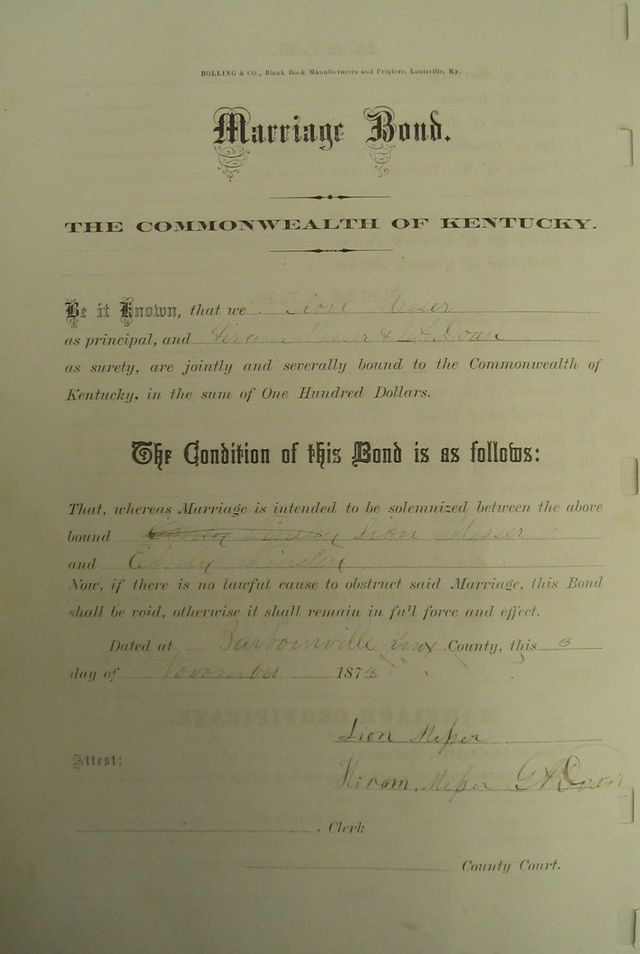 BOLLING & CO., Blank Book Manufacturers and Printers, Louisville, Ky.
Marriage Bond.
THE COMMONWEALTH OF KENTUCKY.
Be it Known, that we Lion Messer
as principal, and Hiram Messer & G A Doan
as surety, are jointly and severally bound to the Commonwealth of
Kentucky, in the sum of One Hundred Dollars.
The Condition of this Bond is as follows:
That, whereas Marriage is intended to be solemnized between the above
bound Lion Messer
and
Now, if there is no lawful cause to obstruct said Marriage, this Bond
shall be void, otherwise it shall remain in full force and effect.
Dated at Barbourville Knox County, this
day of November 187
Lion Messer
Attest:
Hiram Messer G A Doan
, Clerk
County Court.